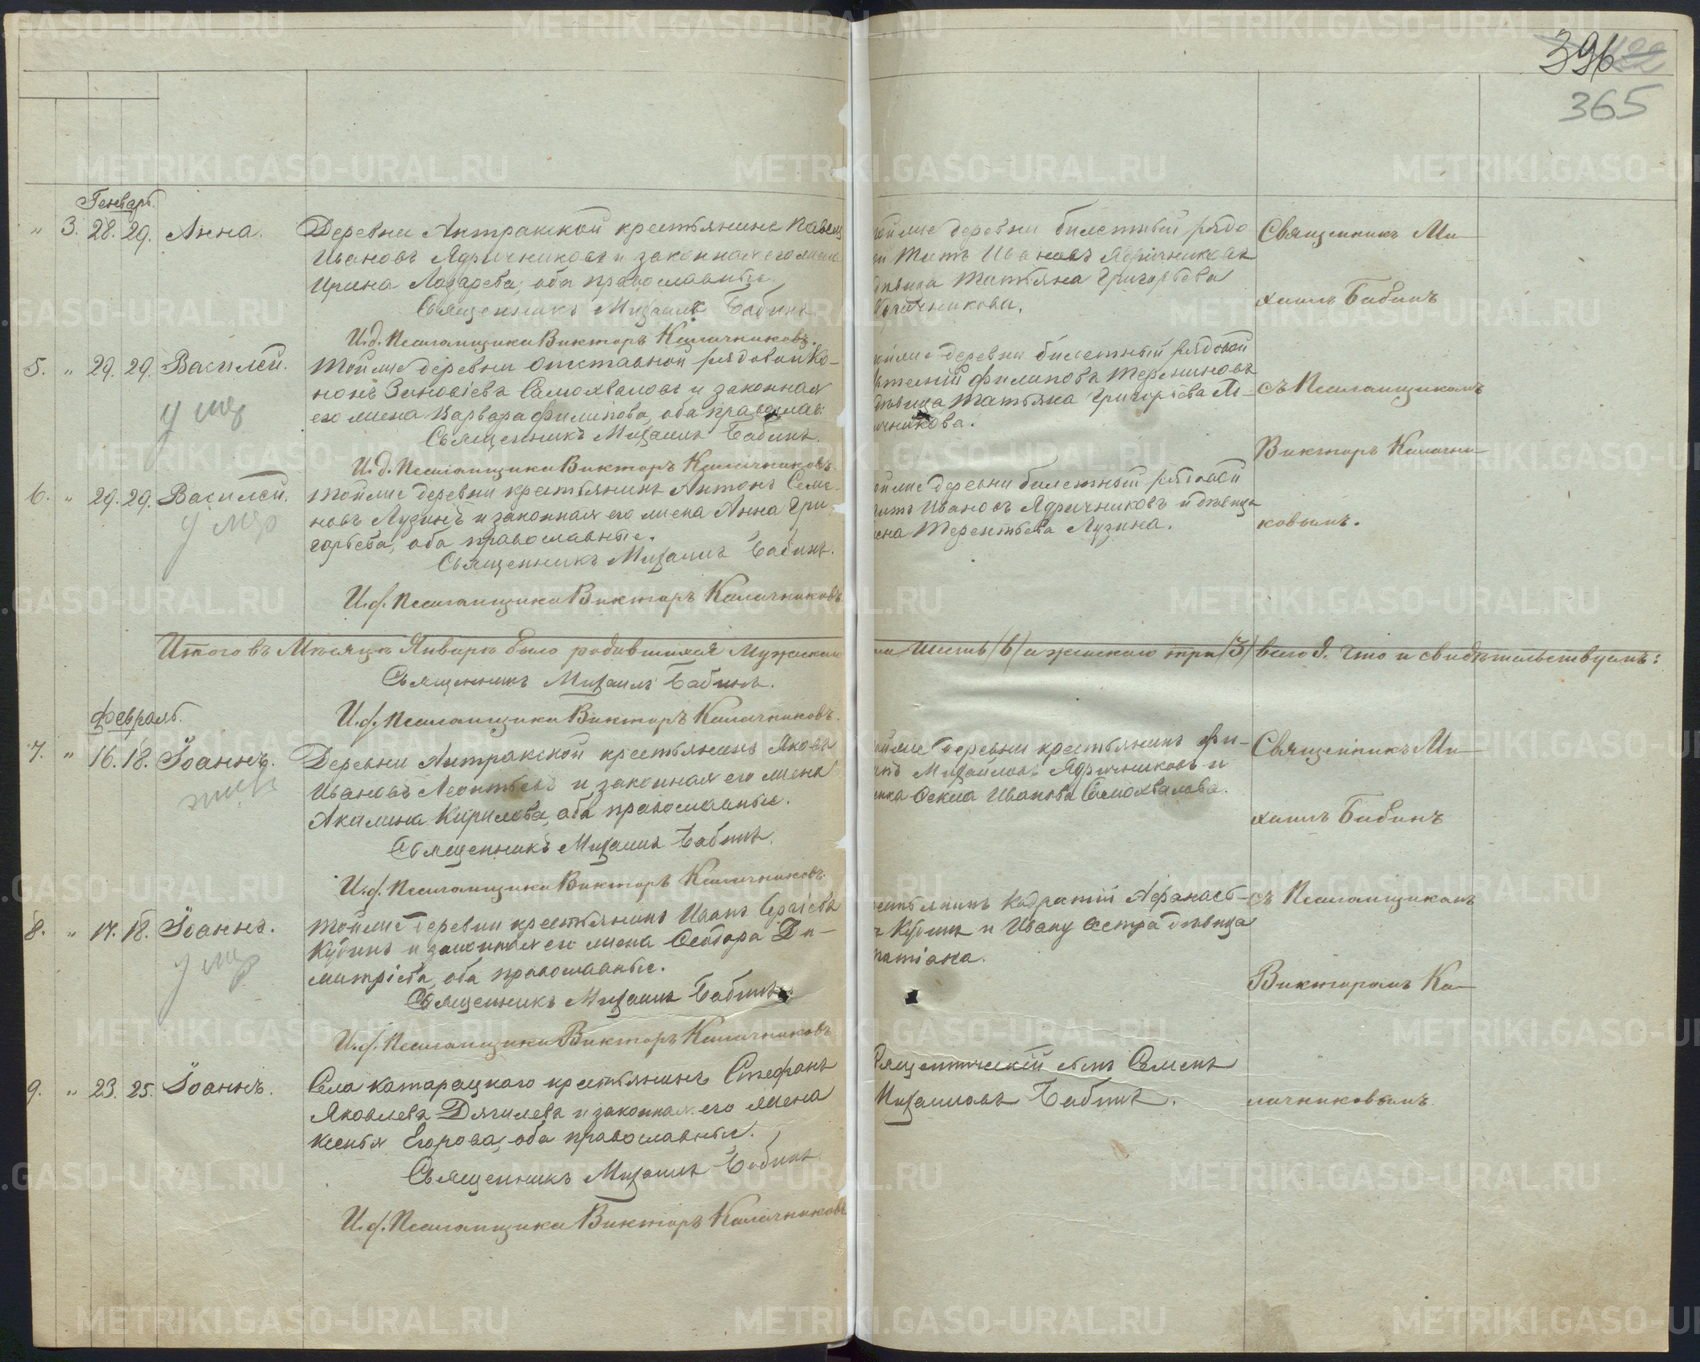 396
365
Генварь.
" 3. 28. 29. Анна.
Деревни Антракской крестьянинъ Павелъ
Ивановъ Ядричниковъ и законная его жена
Ирина Лазарева, оба православные.
Священникъ Михаилъ Бабинъ.
И.д. Псаломщика Викторъ Калачниковъ.
той же деревни билетный рядо
Титъ Ивановъ Ядричниковъ
дѣвица Татьяна Григорьева
Священникъ Ми-
хаилъ Бабинъ
5. " 29. 29. Василей.
умер
Той же деревни отставной рядовой Ко-
нонъ Зиновіевъ Самохваловъ и законная
его жена Варвара Филипова, оба православ:
Священникъ Михаилъ Бабинъ.
И.д. Псаломщика Викторъ Калачниковъ.
той же деревни билетный рядовой
Филиповъ
дѣвица Татьяна Григорьева
съ Псаломщикомъ
Викторъ Калачни-
6. " 29. 29. Василей.
умер
Той же деревни крестьянинъ Антонъ Семе-
новъ Лузинъ и законная его жена Анна Гри-
горьева, оба православные.
Священникъ Михаилъ Бабинъ.
И.д. Псаломщика Викторъ Калачниковъ
той же деревни билетный рядовой
Титъ Ивановъ Ядричниковъ и дѣвица
Терентьева Лузина.
ковымъ.
Итого въ Мѣсяцѣ Январѣ было родившихся Мужскаго
шесть /6/ а женскаго три /3/ всего 9. Что и свидѣтельствуемъ:
Священникъ Михаилъ Бабинъ.
И.д. Псаломщика Викторъ Калачниковъ.
Февраль.
7. " 16. 18. Іоаннъ.
Деревни Антракской крестьянинъ Яковъ
Ивановъ Леонтьевъ и законная его жена
Акилина Кирилова, оба православные.
Священникъ Михаилъ Бабинъ.
И.д. Псаломщика Викторъ Калачниковъ.
той же деревни крестьянинъ Фи-
Михайловъ Ядричниковъ и
Ѳекла Иванова Самохвалова.
Священникъ Ми-
хаилъ Бабинъ
8. " 17. 18. Іоаннъ.
умер
Той же деревни крестьянинъ Иванъ Сергіевъ
Кубинъ и законная его жена Ѳеодора Ди-
митріева, оба православные.
Священникъ Михаилъ Бабинъ.
И.д. Псаломщика Викторъ Калачниковъ
крестьянинъ Кодратій Афанась-
Кубинъ и Ивану сестра дѣвица
Татіана.
съ Псаломщикомъ
Викторомъ Ка-
9. " 23. 25. Іоаннъ.
Села Катарацкаго крестьянинъ Стефанъ
Яковлевъ Дягилевъ и законная его жена
Ксенія Егорова, оба православные.
Священникъ Михаилъ Бабинъ
И.д. Псаломщика Викторъ Калачниковъ
Священнический сынъ Семенъ
Михаиловъ Бабинъ.
лачниковымъ
METRIKI.GASO-URAL.RU